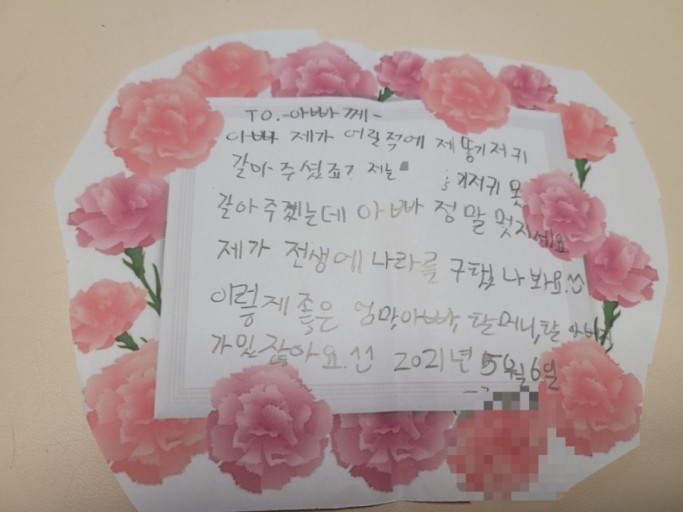 TO.-아빠께-
아빠 제가 어릴적에 제 똥기저귀
갈아주셨죠? 저는 기저귀 못
갈아주겠는데 아빠 정말 멋지세요
제가 전생에 나라를 구했나봐요.^^
이렇게 좋은 엄마,아빠, 할머니,할아버지
가 있잖아요.^^ 2021년 5월6일